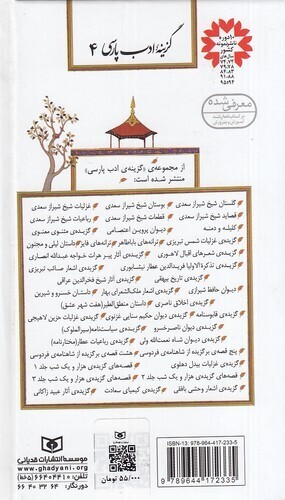 گزینهٔ ادب پارسی ۴
۱۰ دوره
ناشر نمونه
کشور
سال‌های
۷۴،۷۲
۷۹،۷۸
۸۴،۸۲
۹۱،۸۸
۹۵،۹۴
معرفی شده
از مجموعه‌ی «گزینه‌ی ادب پارسی»
منتشر شده است:
گلستان شیخ شیراز سعدی بوستان شیخ شیراز سعدی غزلیات شیخ شیراز سعدی
قصاید شیخ شیراز سعدی قطعات شیخ شیراز سعدی رباعیات شیخ شیراز سعدی
کلیله و دمنه دیوان پروین اعتصامی گزیده‌ی مثنوی معنوی
گزیده‌ی غزلیات شمس تبریزی ترانه‌های باباطاهر ترانه‌های فایز داستان لیلی و مجنون
گزیده‌ی شعرهای اقبال لاهوری گزیده‌ی آثار پیر هرات خواجه عبدالله انصاری
گزیده‌ی تذکرةالاولیا فریدالدین عطار نیشابوری گزیده‌ی اشعار صائب تبریزی
گزیده‌ی تاریخ بیهقی گزیده‌ی آثار شیخ فخرالدین عراقی
دیوان حافظ شیرازی گزیده‌ی اشعار ملک‌الشعرای بهار داستان خسرو و شیرین
گزیده‌ی اخلاق ناصری داستان منطق‌الطیر (هفت شهر عشق)
گزیده‌ی قابوسنامه گزیده‌ی دیوان حکیم سنایی غزنوی گزیده‌ی غزلیات حزین لاهیجی
گزیده‌ی دیوان ناصرخسرو گزیده‌ی سیاستنامه (سیرالملوک)
گزیده‌ی دیوان شاه نعمت‌الله ولی گزیده‌ی رباعیات عطار (مختارنامه)
پنج قصه‌ی برگزیده از شاهنامه‌ی فردوسی هشت قصه‌ی برگزیده از شاهنامه‌ی فردوسی
گزیده‌ی غزلیات بیدل دهلوی قصه‌های گزیده‌ی هزار و یک شب جلد ۱
قصه‌های گزیده‌ی هزار و یک شب جلد ۲ قصه‌های گزیده‌ی هزار و یک شب جلد ۳
گزیده‌ی اشعار وحشی بافقی گزیده‌ی کیمیای سعادت گزیده‌ی آثار عبید زاکانی
مؤسسه انتشارات قدیانی
www.ghadyani.org
تلفن: ۶۶۴۰۴۴۱۰ (۵ خط)
دورنگار: ۶۶ ۴۰ ۳۲ ۶۴
۵۵/۰۰۰ تومان
ISBN-13: 978-964-417-233-5
9 789644 172335